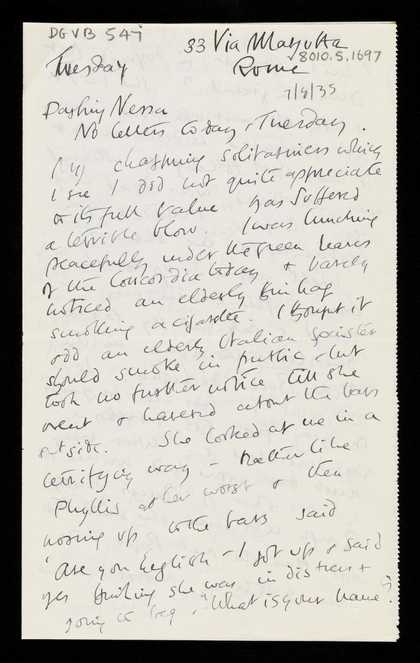 DG VB 547
33 Via Margutta
8010.5.1697
Tuesday
Rome
7/8/35
Darling Nessa
No letters today, Tuesday.
My charming solitariness which
I see I did not quite appreciate
at its full value has suffered
a terrible blow. I was lunching
peacefully under the green leaves
of the Concordia today & barely
noticed an elderly hag
smoking a cigarette. I thought it
odd an elderly Italian spinster
should smoke in public, but
took no further notice till she
went & hovered about the bars
outside. She looked at me in a
terrifying way – rather like
Phyllis at her worst & then
up to the bars said
'Are you English – I got up & said
yes thinking she was in distress &
going to beg, 'What is your name?'